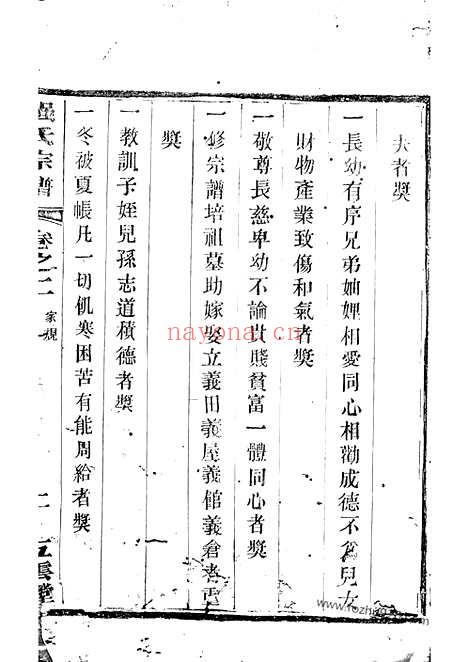 夫者獎
一長幼有序兄弟妯娌相愛同心相勸成德不爲兒女
財物產業致傷和氣者獎
一敬尊長慈卑幼不論貴賤貧富一體同心者獎
一修宗譜培祖墓助嫁娶立義田義屋義館義倉者
獎
一教訓子姪兒孫志道積德者獎
一冬被夏帳凡一切飢寒困苦有能周給者獎
氏宗譜 卷之二 家規 二 五雲堂
nayona.cn